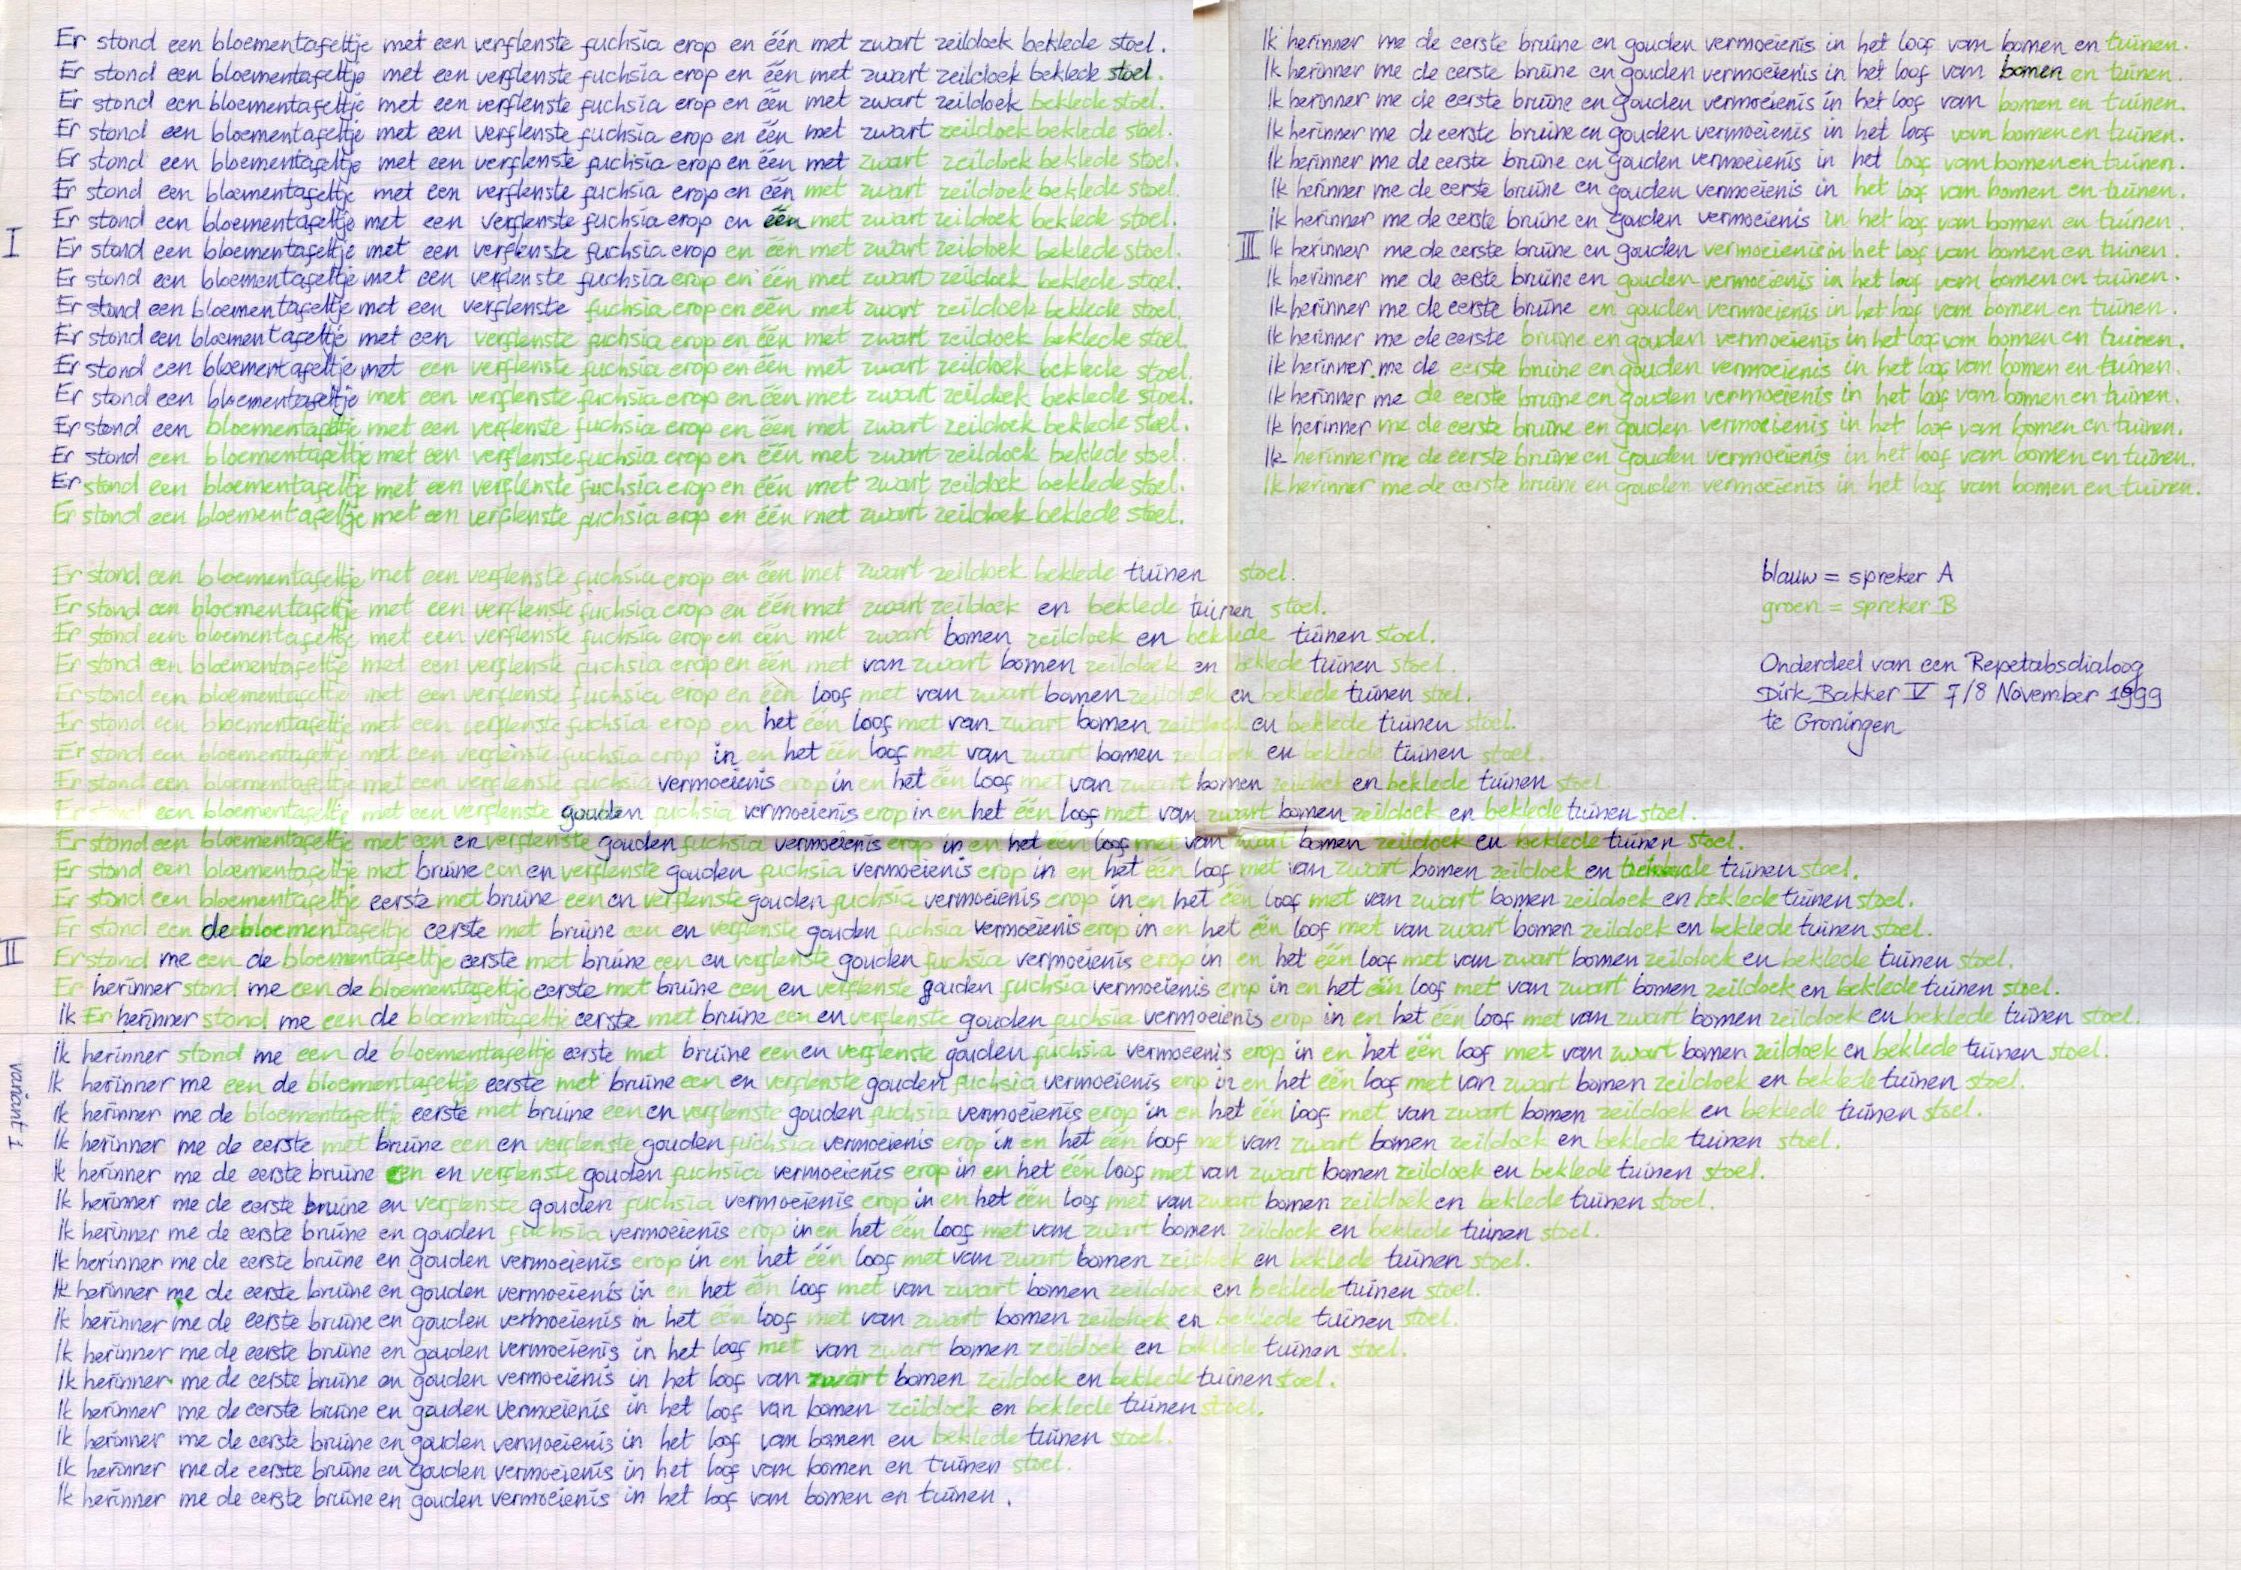 I
Er stond een bloementafeltje met een verflenste fuchsia erop en één met zwart zeildoek beklede stoel.
Er stond een bloementafeltje met een verflenste fuchsia erop en één met zwart zeildoek beklede stoel.
Er stond een bloementafeltje met een verflenste fuchsia erop en één met zwart zeildoek beklede stoel.
Er stond een bloementafeltje met een verflenste fuchsia erop en één met zwart zeildoek beklede stoel.
Er stond een bloementafeltje met een verflenste fuchsia erop en één met zwart zeildoek beklede stoel.
Er stond een bloementafeltje met een verflenste fuchsia erop en één met zwart zeildoek beklede stoel.
Er stond een bloementafeltje met een verflenste fuchsia erop en één met zwart zeildoek beklede stoel.
Er stond een bloementafeltje met een verflenste fuchsia erop en één met zwart zeildoek beklede stoel.
Er stond een bloementafeltje met een verflenste fuchsia erop en één met zwart zeildoek beklede stoel.
Er stond een bloementafeltje met een verflenste fuchsia erop en één met zwart zeildoek beklede stoel.
Er stond een bloementafeltje met een verflenste fuchsia erop en één met zwart zeildoek beklede stoel.
Er stond een bloementafeltje met een verflenste fuchsia erop en één met zwart zeildoek beklede stoel.
Er stond een bloementafeltje met een verflenste fuchsia erop en één met zwart zeildoek beklede stoel.
Er stond een bloementafeltje met een verflenste fuchsia erop en één met zwart zeildoek beklede stoel.
Er stond een bloementafeltje met een verflenste fuchsia erop en één met zwart zeildoek beklede stoel.
Er stond een bloementafeltje met een verflenste fuchsia erop en één met zwart zeildoek beklede stoel.
Er stond een bloementafeltje met een verflenste fuchsia erop en één met zwart zeildoek beklede stoel.
II
variant 1
Er stond een bloementafeltje met een verflenste fuchsia erop en één met zwart zeildoek beklede tuinen stoel.
Er stond een bloementafeltje met een verflenste fuchsia erop en één met zwart zeildoek en beklede tuinen stoel.
Er stond een bloementafeltje met een verflenste fuchsia erop en één met zwart bomen zeildoek en beklede tuinen stoel.
Er stond een bloementafeltje met een verflenste fuchsia erop en één met van zwart bomen zeildoek en beklede tuinen stoel.
Er stond een bloementafeltje met een verflenste fuchsia erop en één loof met van zwart bomen zeildoek en beklede tuinen stoel.
Er stond een bloementafeltje met een verflenste fuchsia erop en het één loof met van zwart bomen zeildoek en beklede tuinen stoel.
Er stond een bloementafeltje met een verflenste fuchsia erop in en het één loof met van zwart bomen zeildoek en beklede tuinen stoel.
Er stond een bloementafeltje met een verflenste fuchsia vermoeienis erop in en het één loof met van zwart bomen zeildoek en beklede tuinen stoel.
Er stond een bloementafeltje met een verflenste gouden fuchsia vermoeienis erop in en het één loof met van zwart bomen zeildoek en beklede tuinen stoel.
Er stond een bloementafeltje met een en verflenste gouden fuchsia vermoeienis erop in en het één loof met van zwart bomen zeildoek en beklede tuinen stoel.
Er stond een bloementafeltje met bruine een en verflenste gouden fuchsia vermoeienis erop in en het één loof met van zwart bomen zeildoek en beklede tuinen stoel.
Er stond een bloementafeltje eerste met bruine een en verflenste gouden fuchsia vermoeienis erop in en het één loof met van zwart bomen zeildoek en beklede tuinen stoel.
Er stond een de bloementafeltje eerste met bruine een en verflenste gouden fuchsia vermoeienis erop in en het één loof met van zwart bomen zeildoek en beklede tuinen stoel.
Er stond me een de bloementafeltje eerste met bruine een en verflenste gouden fuchsia vermoeienis erop in en het één loof met van zwart bomen zeildoek en beklede tuinen stoel.
Er herinner stond me een de bloementafeltje eerste met bruine een en verflenste gouden fuchsia vermoeienis erop in en het één loof met van zwart bomen zeildoek en beklede tuinen stoel.
Ik Er herinner stond me een de bloementafeltje eerste met bruine een en verflenste gouden fuchsia vermoeienis erop in en het één loof met van zwart bomen zeildoek en beklede tuinen stoel.
Ik herinner stond me een de bloementafeltje eerste met bruine een en verflenste gouden fuchsia vermoeenis erop in en het één loof met van zwart bomen zeildoek en beklede tuinen stoel.
Ik herinner me een de bloementafeltje eerste met bruine een en verflenste gouden fuchsia vermoeienis erop in en het één loof met van zwart bomen zeildoek en beklede tuinen stoel.
Ik herinner me de bloementafeltje eerste met bruine een en verflenste gouden fuchsia vermoeienis erop in en het één loof met van zwart bomen zeildoek en beklede tuinen stoel.
Ik herinner me de eerste met bruine een en verflenste gouden fuchsia vermoeienis erop in en het één loof met van zwart bomen zeildoek en beklede tuinen stoel.
Ik herinner me de eerste bruine een en verflenste gouden fuchsia vermoeienis erop in en het één loof met van zwart bomen zeildoek en beklede tuinen stoel.
Ik herinner me de eerste bruine en verflenste gouden fuchsia vermoeienis erop in en het één loof met van zwart bomen zeildoek en beklede tuinen stoel.
Ik herinner me de eerste bruine en gouden fuchsia vermoeienis erop in en het één loof met van zwart bomen zeildoek en beklede tuinen stoel.
Ik herinner me de eerste bruine en gouden vermoeienis erop in en het één loof met van zwart bomen zeildoek en beklede tuinen stoel.
Ik herinner me de eerste bruine en gouden vermoeienis in en het één loof met van zwart bomen zeildoek en beklede tuinen stoel.
Ik herinner me de eerste bruine en gouden vermoeienis in het één loof met van zwart bomen zeildoek en beklede tuinen stoel.
Ik herinner me de eerste bruine en gouden vermoeienis in het loof met van zwart bomen zeildoek en beklede tuinen stoel.
Ik herinner me de eerste bruine en gouden vermoeienis in het loof van zwart bomen zeildoek en beklede tuinen stoel.
Ik herinner me de eerste bruine en gouden vermoeienis in het loof van bomen zeildoek en beklede tuinen stoel.
Ik herinner me de eerste bruine en gouden vermoeienis in het loof van bomen en beklede tuinen stoel.
Ik herinner me de eerste bruine en gouden vermoeienis in het loof van bomen en tuinen stoel.
Ik herinner me de eerste bruine en gouden vermoeienis in het loof van bomen en tuinen.
III
Ik herinner me de eerste bruine en gouden vermoeienis in het loof van bomen en tuinen.
Ik herinner me de eerste bruine en gouden vermoeienis in het loof van bomen en tuinen.
Ik herinner me de eerste bruine en gouden vermoeienis in het loof van bomen en tuinen.
Ik herinner me de eerste bruine en gouden vermoeienis in het loof van bomen en tuinen.
Ik herinner me de eerste bruine en gouden vermoeienis in het loof van bomen en tuinen.
Ik herinner me de eerste bruine en gouden vermoeienis in het loof van bomen en tuinen.
Ik herinner me de eerste bruine en gouden vermoeienis in het loof van bomen en tuinen.
Ik herinner me de eerste bruine en gouden vermoeienis in het loof van bomen en tuinen.
Ik herinner me de eerste bruine en gouden vermoeienis in het loof van bomen en tuinen.
Ik herinner me de eerste bruine en gouden vermoeienis in het loof van bomen en tuinen.
Ik herinner me de eerste bruine en gouden vermoeienis in het loof van bomen en tuinen.
Ik herinner me de eerste bruine en gouden vermoeienis in het loof van bomen en tuinen.
Ik herinner me de eerste bruine en gouden vermoeienis in het loof van bomen en tuinen.
Ik herinner me de eerste bruine en gouden vermoeienis in het loof van bomen en tuinen.
Ik herinner me de eerste bruine en gouden vermoeienis in het loof van bomen en tuinen.
Ik herinner me de eerste bruine en gouden vermoeienis in het loof van bomen en tuinen.
blauw = spreker A
groen = spreker B
Onderdeel van een Repetabsdialoog
Dirk Bakker V 7/8 November 1999
te Groningen